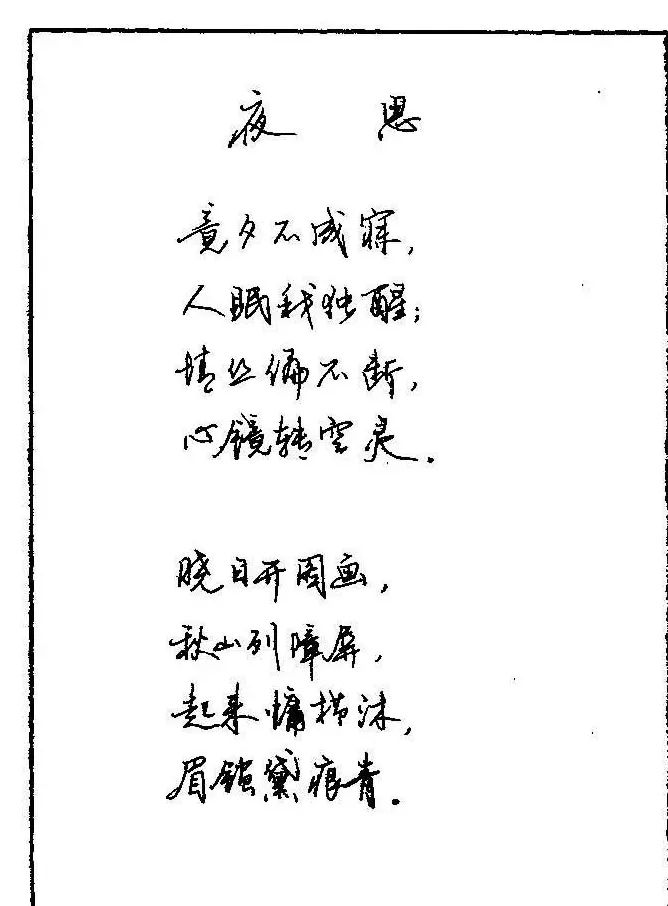 夜 思
竟夕不成寐，
人眠我独醒；
情丝偏不断，
心镜转空灵．
晓日开图画，
秋山列障屏，
起来慵栉沐，
眉锁黛痕青．